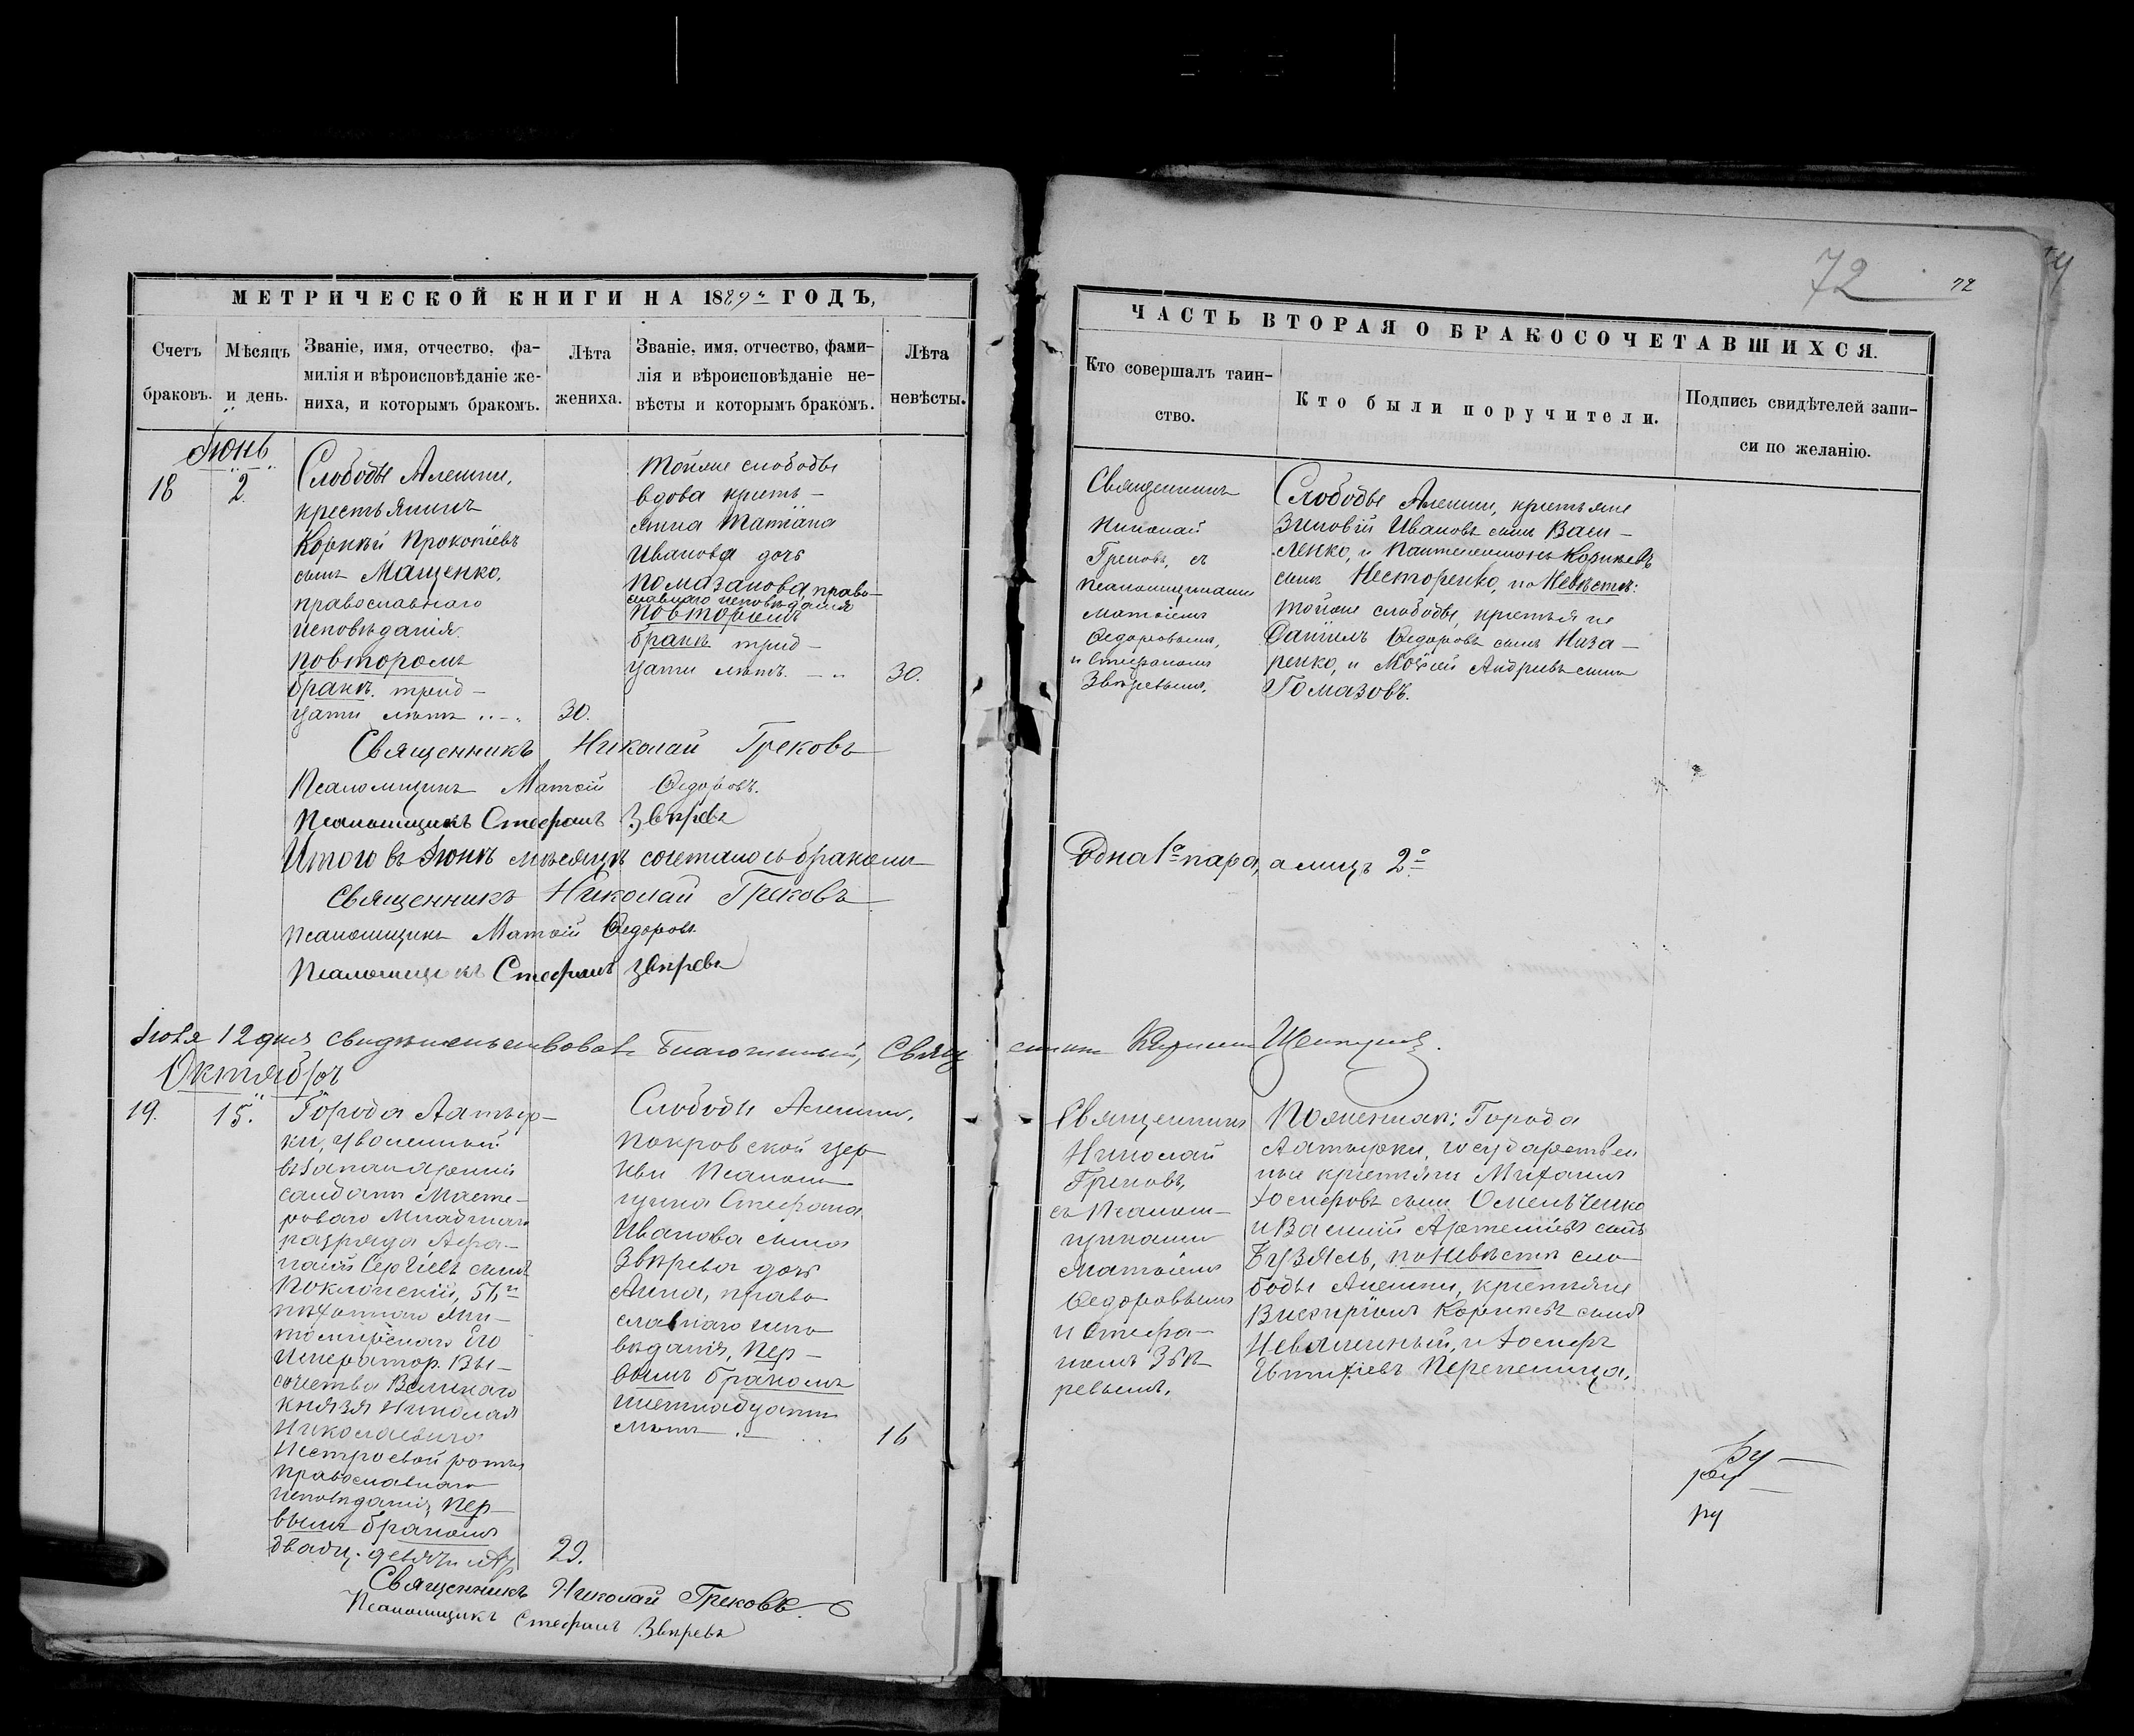 72
72
МЕТРИЧЕСКОЙ КНИГИ НА 1889й ГОДЪ,
Счетъ браковъ.
Мѣсяцъ и день.
Званіе, имя, отчество, фа-
милія и вѣроисповѣданіе же-
ниха, и которымъ бракомъ.
Лѣта жениха.
Званіе, имя, отчество, фами-
лія и вѣроисповѣданіе не-
вѣсты и которымъ бракомъ.
Лѣта невѣсты.
Іюнь
18
2.
Слободы Алешни,
крестьянинъ
Корнѣй Прокопіевъ
сынъ Мащенко,
православнаго
исповѣданія.
повторомъ
бракѣ. трид-
цати лѣтъ
30.
тойже слободы
вдова кресть-
янка Татіана
Иванова дочь
Помазанова, право-
славнаго исповѣданія
повторомъ
бракѣ трид-
цати лѣтъ.
30.
Священникъ Николай Грековъ
Псаломщикъ Матѳій Ѳедоровъ.
Псаломщикъ Стефанъ Звѣревъ
Итого въ Іюнѣ мѣсяцѣ сочеталось бракомъ
Священникъ Николай Грековъ
Псаломщикъ Матѳій Ѳедоровъ
Псаломщикъ Стефанъ Звѣревъ
Іюля 12 дня свидѣтельствовалъ Благочинный, Свящ
Октябрь
19.
15.
Города Ахтыр-
ки, уволенный
въ запас арміи
солдатъ Масте-
роваго Младшаго
разряда Афа-
насій Сергіевъ сынъ
Поклонскій, 56й
пѣхотнаго Жи-
томирскаго Его
Император. Вы-
сочества Великаго
князя Николая
Николаевича
Нестроевой роты
православнаго
исповѣданія, пер-
вымъ бракомъ
двадц. девяти лѣт
29.
Слободы Алешни,
Покровской цер
кви Псалом
щика Стефана
Иванова сына
Звѣрева дочь
Анна, право
славнаго испо
вѣданія, пер-
вымъ бракомъ
шестнадцати
лѣтъ
16
Священникъ Николай Грековъ.
Псаломщикъ Стефанъ Звѣревъ
ЧАСТЬ ВТОРАЯ О БРАКОСОЧЕТАВШИХСЯ.
Кто совершалъ таин-
ство.
Кто были поручители.
Подпись свидѣтелей запи-
си по желанію.
Священникъ
Николай
Грековъ, съ
псаломщиками
Матѳіемъ
Ѳедоровымъ,
и Стефаномъ
Звѣревымъ.
Слободы Алешни, крестьяне
Зиновій Ивановъ сынъ Васи-
ленко, и Пантелеимонъ Корнѣевъ
сынъ Несторенко, по Невѣстѣ:
тойже слободы, крестьяне
Даніилъ Ѳедоровъ сынъ Наза-
ренко, и Моѵсей Андреевъ сынъ
Помазовъ.
Одна 1а пара, а лицъ 2а
енникъ
Священникъ
Николай
Грековъ,
съ Псалом-
щиками
Матѳіемъ
Ѳедоровымъ
и Стефа-
номъ Звѣ-
ревымъ.
По женихѣ: Города
Ахтырки, государствен
ные крестьяне Михаилъ
Іосифовъ сынъ Омельченко
и Василій Артеміевъ сынъ
Бузякъ, по Невѣстѣ сло
боды Алешни, крестьяне
Корнѣевъ сынъ
и Іосифъ
Перепелица.
ру